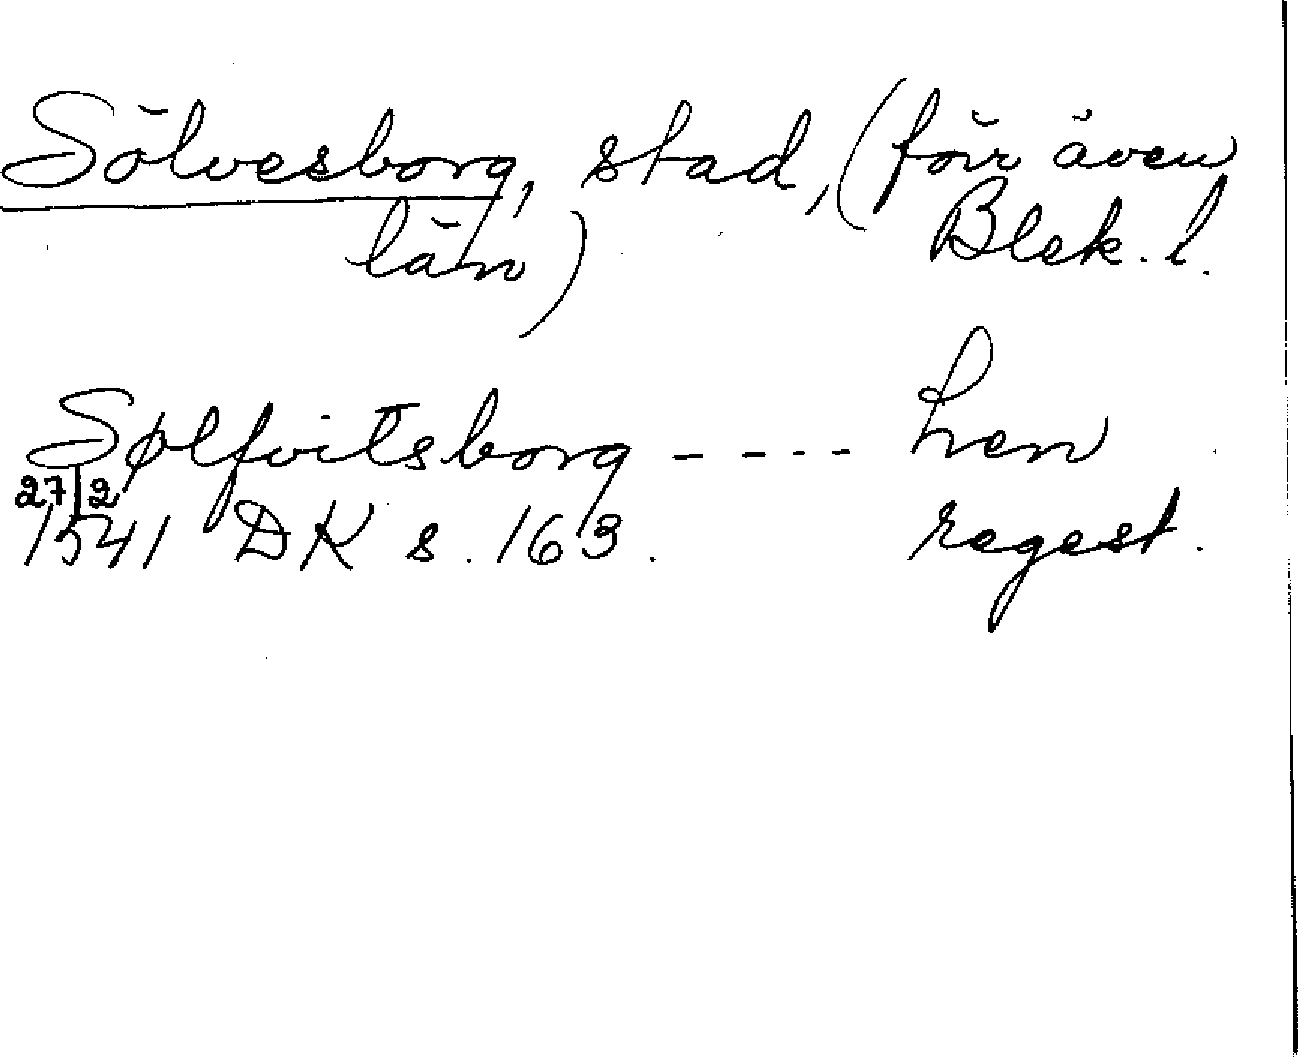 Sölvesborg, stad, (förr även
län) Blek. l.
Sølfvitsborg ---- hen
27/2
1541 DK s. 163. regest.